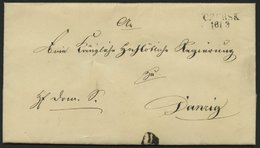 CZERSK
16/3
An
Eine Königliche Hochlöbliche Regierung
zu
Danzig